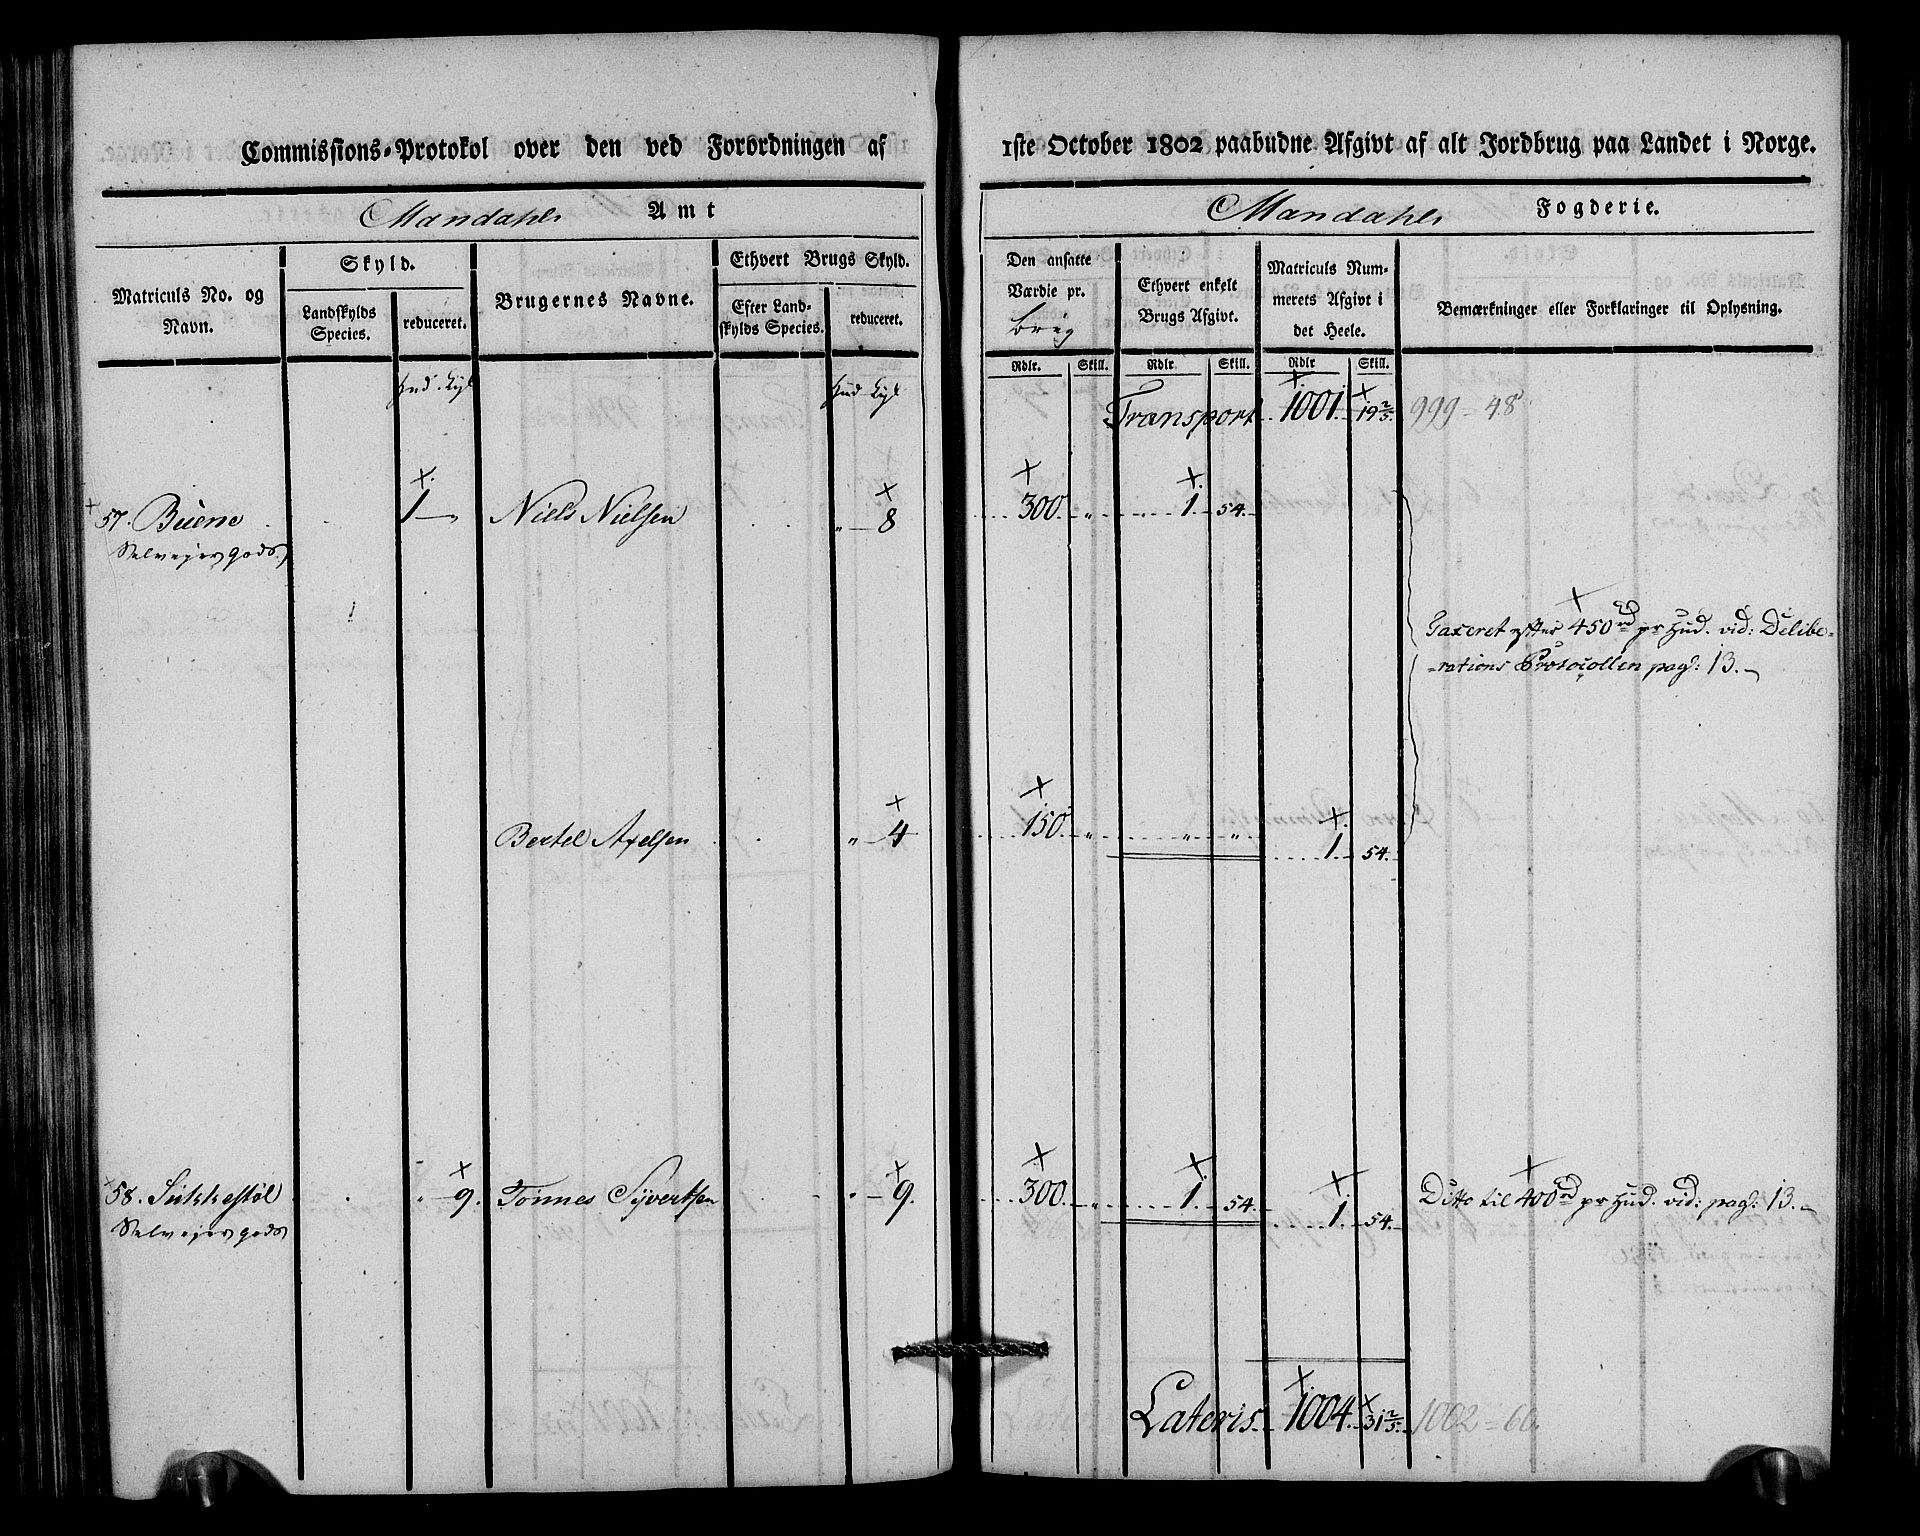 Commissions-Protokol over den ved Forordningen af 1ste October 1802 paabudne Afgivt af alt Jordbrug paa Landet i Norge.
Mandahls Amt
Mandahls Fogderie.
Matriculs No. og Navn.
Skyld.
Landskylds Species.
reduceret.
Brugernes Navne.
Ethvert Brugs Skyld.
Efter Landskylds Species.
reduceret.
Den ansatte Værdie pr. brug
Ethvert enkelt Brugs Afgivt.
Matriculs Nummerets Afgivt i det Heele.
Bemærkninger eller Forklaringer til Oplysning.
Rdlr. Skill. Rdlr Skill. Rdlr Skill.
Transport 1001. 19 2/5. 999 - 48
57. Buene 1 — Niels Nielsen „ — 8 300. „ 1. 54.
Selveiergods
Taxeret efter 450 rd pr Hud. vid: Delibe-
-rations Protocollen pag: 13. –
Bertel Axelsen „ — 4 150. „ „ „ 1. 54.
58. Sukkestøl „ — 9. Tønnes Syvertsen „ — 9. 300. „ 1. 54. 1. 54. Ditto til 400 rd pr Hud. vid: pag: 13. –
Selveiergods
Lateris. 1004. 31 2/5. 1002 = 60.